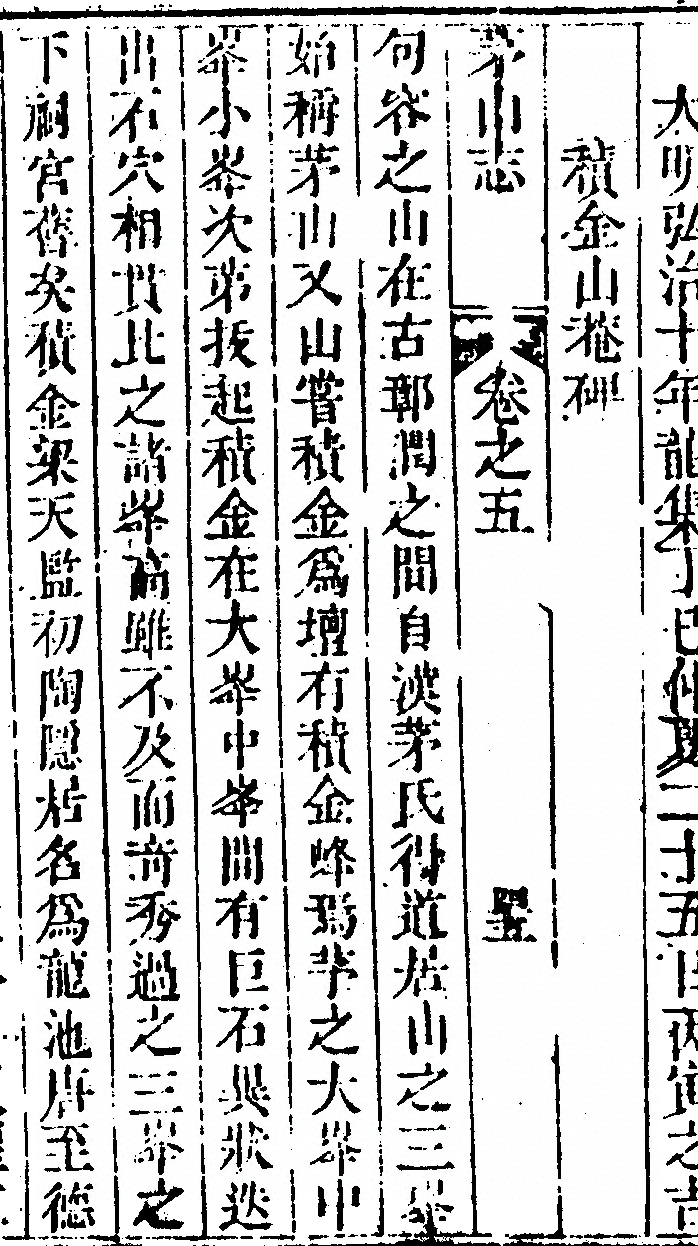 大明弘治十年龍集丁巳仲夏二十五日丙寅之吉
積金山菴碑
茅山志 卷之五 
句容之山在古鄣潤之間自漢茅氏得道居山之三峯
始稱茅山又山嘗積金為壇有積金峰焉茅之大峯中
峯小峯次第拔起積金在大峯中峯間有巨石異狀迭
出石穴相貫比之諸峯高雖不及而竒秀過之三峯之
下嗣宫舊矣積金梁天監初陶隱居名為龍池唐至德